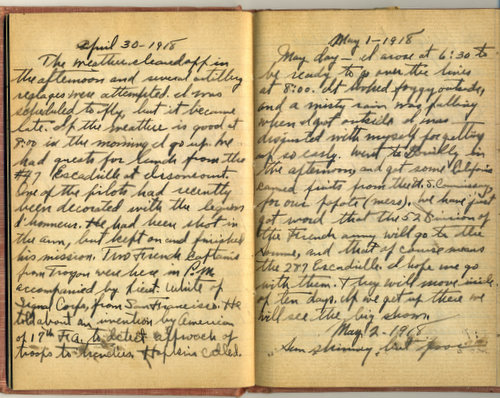 April 30-1918
The weather cleared off in
the afternoon and several artillery
reglages were attempted. I was
scheduled to fly, but it became
late. If the weather is good at
8:00 in the morning I go up. We
had guests for lunch from the
#47 Escadrille at
One of the pilots had recently
been decorated with the legion
d'honneur. He had been shot in
the arm, but kept on and finished
his mission. Two French captains
from Troyon were here in P.M.
accompanied by Lieut. White of
Signal Corps, from San Francisco. He
told about an invention by American
of 17th F.A. to detect approach of
troops to trenches. Hopkins called.
May 1-1918
May day - I arose at 6:30 to
be ready to go over the lines
at 8:00. It looked foggy outside,
and a misty rain was falling
when I got outside. I was
disgusted with myself for getting
up so early. Went to in
the afternoon and got some California
canned fruits from the U.S. Commissary
for our popote (mess). We have just
got word that the 52 Division of
the French army will go to the
Somme, and that of course means
the 277 Escadrille. I hope we go
with them. They will move inside
of ten days. If we get up there we
will see the big show.
May 2-1918
Sun shining, but